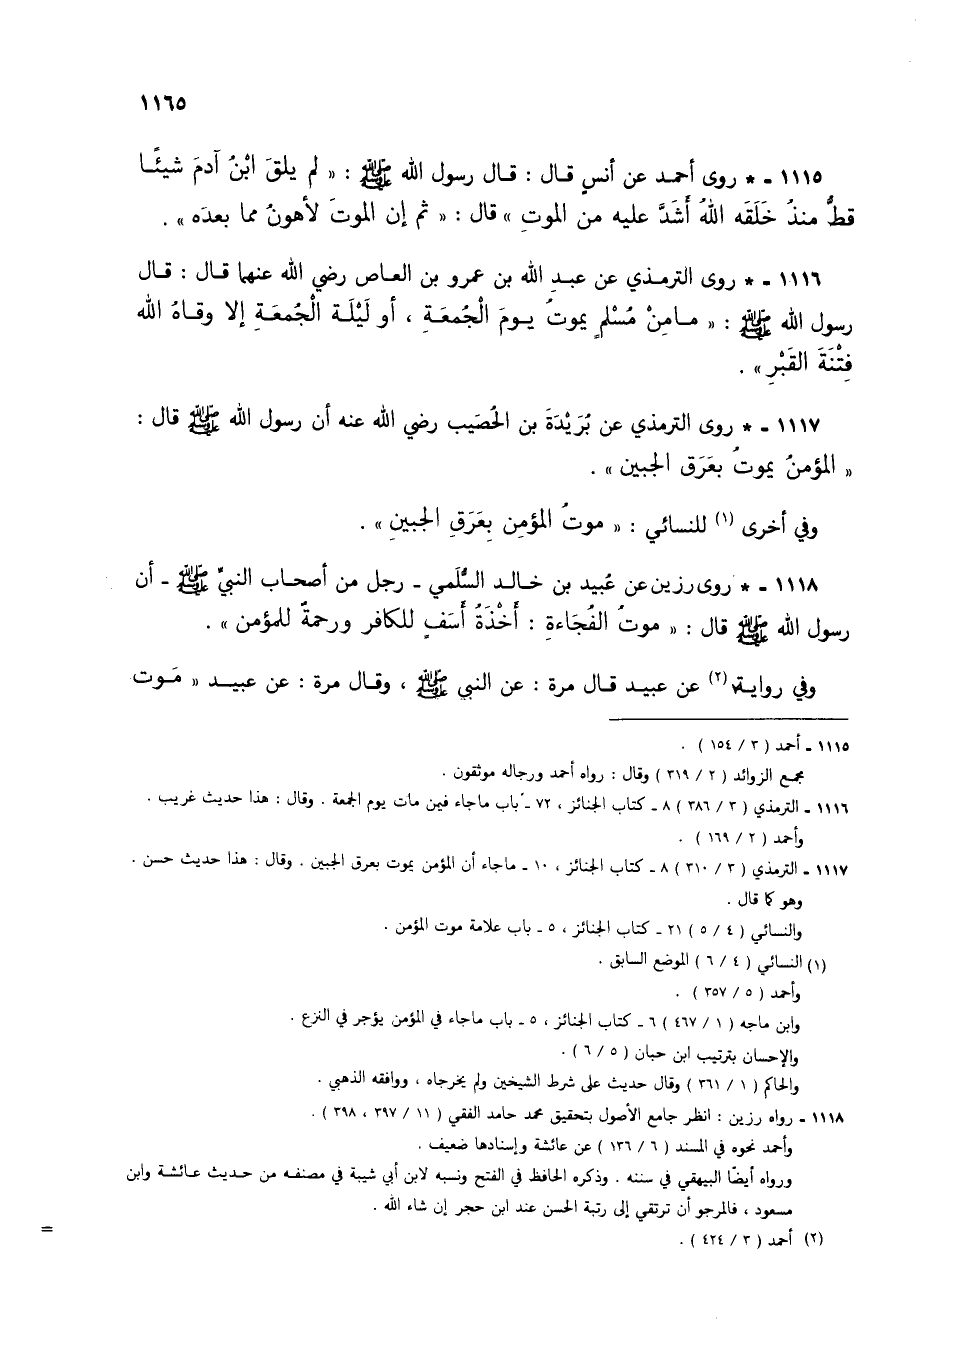 ١١٦٥
١١١٥ - * روى أحمد عن أنسٍ قال : قال رسول الله ﷺ : « لم يلقَ ابْنُ آدمَ شيئًا
قطُّ منذُ خَلَقَه اللهُ أَشَدَّ عليه من الموتِ » قال : « ثم إن الموتَ لأهونُ مما بعدَه » .
١١١٦ - * روى الترمذي عن عبدِ الله بن عمرو بن العاص رضي الله عنهما قال : قال
رسول الله ﷺ : « مامِنْ مُسْلمٍ يموتُ يومَ الْجُمعَةِ ، أو لَيْلَةَ الْجُمعَةِ إلا وقاهُ الله
فِتْنَةَ القَبْرِ » .
١١١٧ - * روى الترمذي عن بُرَيْدَةَ بن الحُصَيب رضي الله عنه أن رسول الله ﷺ قال :
« المؤمنُ يموتُ بعَرَق الجبين » .
وفي أخرى (١) للنسائي : « موتُ المؤمِن بِعَرَقِ الجبينِ » .
١١١٨ - * روى رزين عن عُبيد بن خالد السُّلَمي - رجل من أصحاب النبيِّ ﷺ - أن
رسول الله ﷺ قال : « موتُ الفُجَاءةِ : أَخْذَةُ أَسَفٍ للكافر ورحمةٌ للمؤمن » .
وفي رواية (٢) عن عبيد قال مرة : عن النبي ﷺ ، وقال مرة : عن عبيد « مَوت
١١١٥ - أحمد ( ٣ / ١٥٤ ) .
مجمع الزوائد ( ٢ / ٣١٩ ) وقال : رواه أحمد ورجاله موثقون .
١١١٦ - الترمذي ( ٣ / ٣٨٦ ) ٨ - كتاب الجنائز ، ٧٢ - باب ماجاء فين مات يوم الجمعة . وقال : هذا حديث غريب .
وأحمد ( ٢ / ١٦٩ ) .
١١١٧ - الترمذي ( ٣ / ٣١٠ ) ٨ - كتاب الجنائز ، ١٠ - ماجاء أن المؤمن يموت بعرق الجبين . وقال : هذا حديث حسن .
وهو كما قال .
والنسائي ( ٤ / ٥ ) ٢١ - كتاب الجنائز ، ٥ - باب علامة موت المؤمن .
(١) النسائي ( ٤ / ٦ ) الموضع السابق .
وأحمد ( ٥ / ٣٥٧ ) .
وابن ماجه ( ١ / ٤٦٧ ) ٦ - كتاب الجنائز ، ٥ - باب ماجاء في المؤمن يؤجر في النزع .
والإحسان بترتيب ابن حبان ( ٥ / ٦ ) .
والحاكم ( ١ / ٣٦١ ) وقال حديث على شرط الشيخين ولم يخرجاه ، ووافقه الذهبي .
١١١٨ - رواه رزين : انظر جامع الأصول بتحقيق محمد حامد الفقي ( ١١ / ٣٩٧ ، ٣٩٨ ) .
وأحمد نحوه في المسند ( ٦ / ١٣٦ ) عن عائشة وإسنادها ضعيف .
ورواه أيضًا البيهقي في سننه . وذكره الحافظ في الفتح ونسبه لابن أبي شيبة في مصنفه من حديث عائشة وابن
مسعود ، فالمرجو أن ترتقي إلى رتبة الحسن عند ابن حجر إن شاء الله .
(٢) أحمد ( ٣ / ٤٢٤ ) .
=